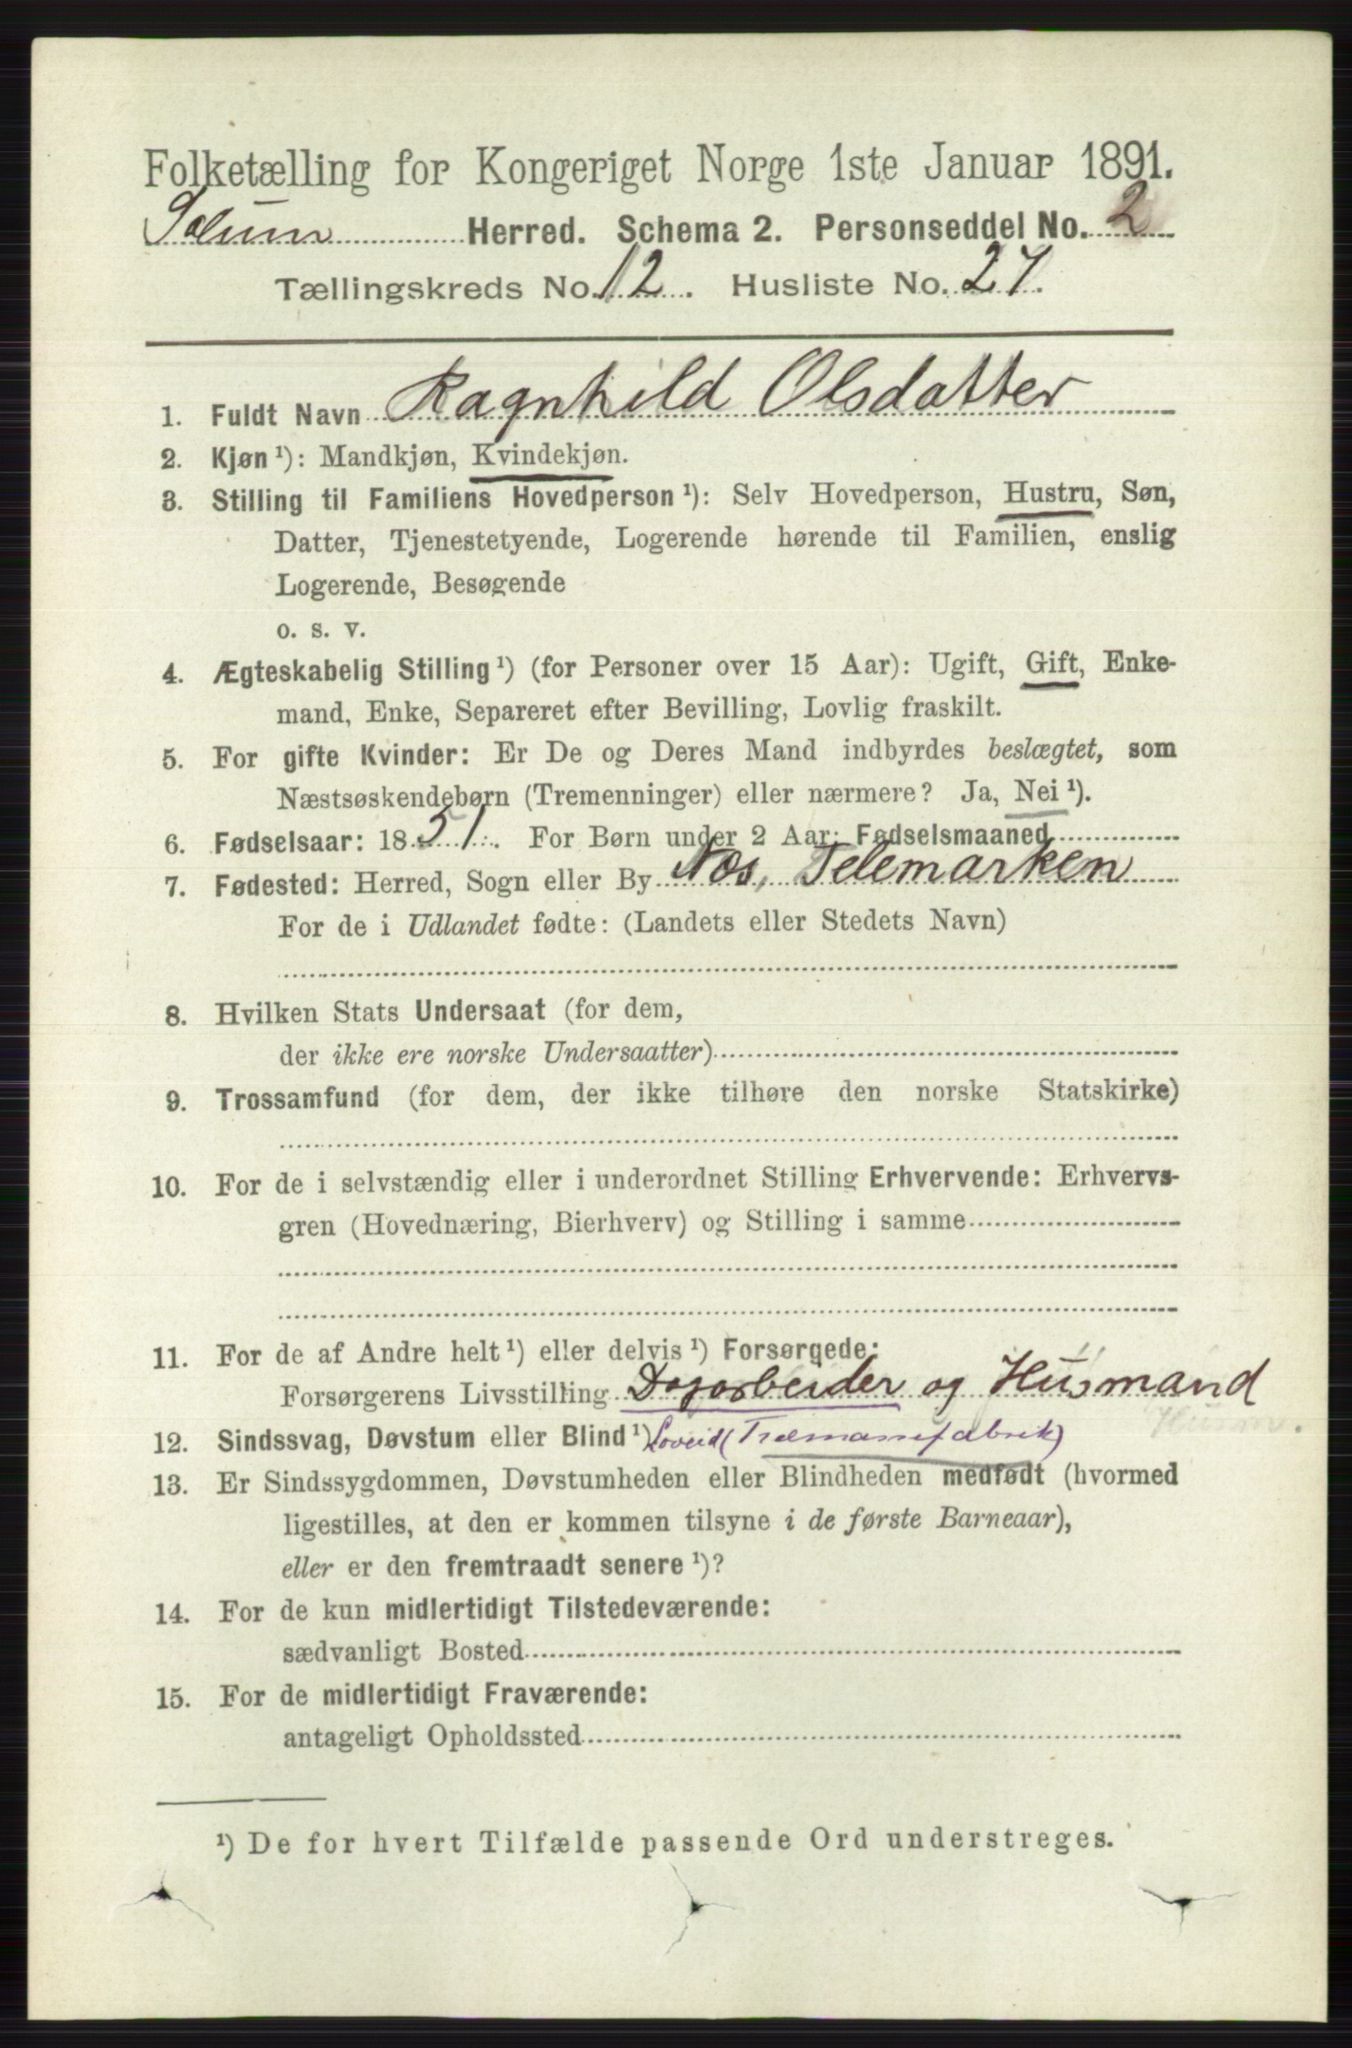 Folketælling for Kongeriget Norge 1ste Januar 1891.
Solum Herred. Schema 2. Personseddel No. 2
Tællingskreds No. 12. Husliste No. 27.
1. Fuldt Navn Ragnhild Olsdatter
2. Kjøn ¹): Mandkjøn, Kvindekjøn.
3. Stilling til Familiens Hovedperson ¹): Selv Hovedperson, Hustru, Søn,
Datter, Tjenestetyende, Logerende hørende til Familien, enslig
Logerende, Besøgende
o. s. v.
4. Ægteskabelig Stilling ¹) (for Personer over 15 Aar): Ugift, Gift, Enke-
mand, Enke, Separeret efter Bevilling, Lovlig fraskilt.
5. For gifte Kvinder: Er De og Deres Mand indbyrdes beslægtet, som
Næstsøskendebørn (Tremenninger) eller nærmere? Ja, Nei ¹).
6. Fødselsaar: 1851. For Børn under 2 Aar: Fødselsmaaned
7. Fødested: Herred, Sogn eller By Næs, Telemarken
For de i Udlandet fødte: (Landets eller Stedets Navn)
8. Hvilken Stats Undersaat (for dem,
der ikke ere norske Undersaatter)
9. Trossamfund (for dem, der ikke tilhøre den norske Statskirke)
10. For de i selvstændig eller i underordnet Stilling Erhvervende: Erhvervs-
gren (Hovednæring, Bierhverv) og Stilling i samme
11. For de af Andre helt ¹) eller delvis ¹) Forsørgede:
Forsørgerens Livsstilling Dagarbeider og Husmand
Husm.
12. Sindssvag, Døvstum eller Blind ¹) Loveid (Træmassefabrik)
13. Er Sindssygdommen, Døvstumheden eller Blindheden medfødt (hvormed
ligestilles, at den er kommen tilsyne i de første Barneaar),
eller er den fremtraadt senere ¹)?
14. For de kun midlertidigt Tilstedeværende:
sædvanligt Bosted
15. For de midlertidigt Fraværende:
antageligt Opholdssted
¹) De for hvert Tilfælde passende Ord understreges.